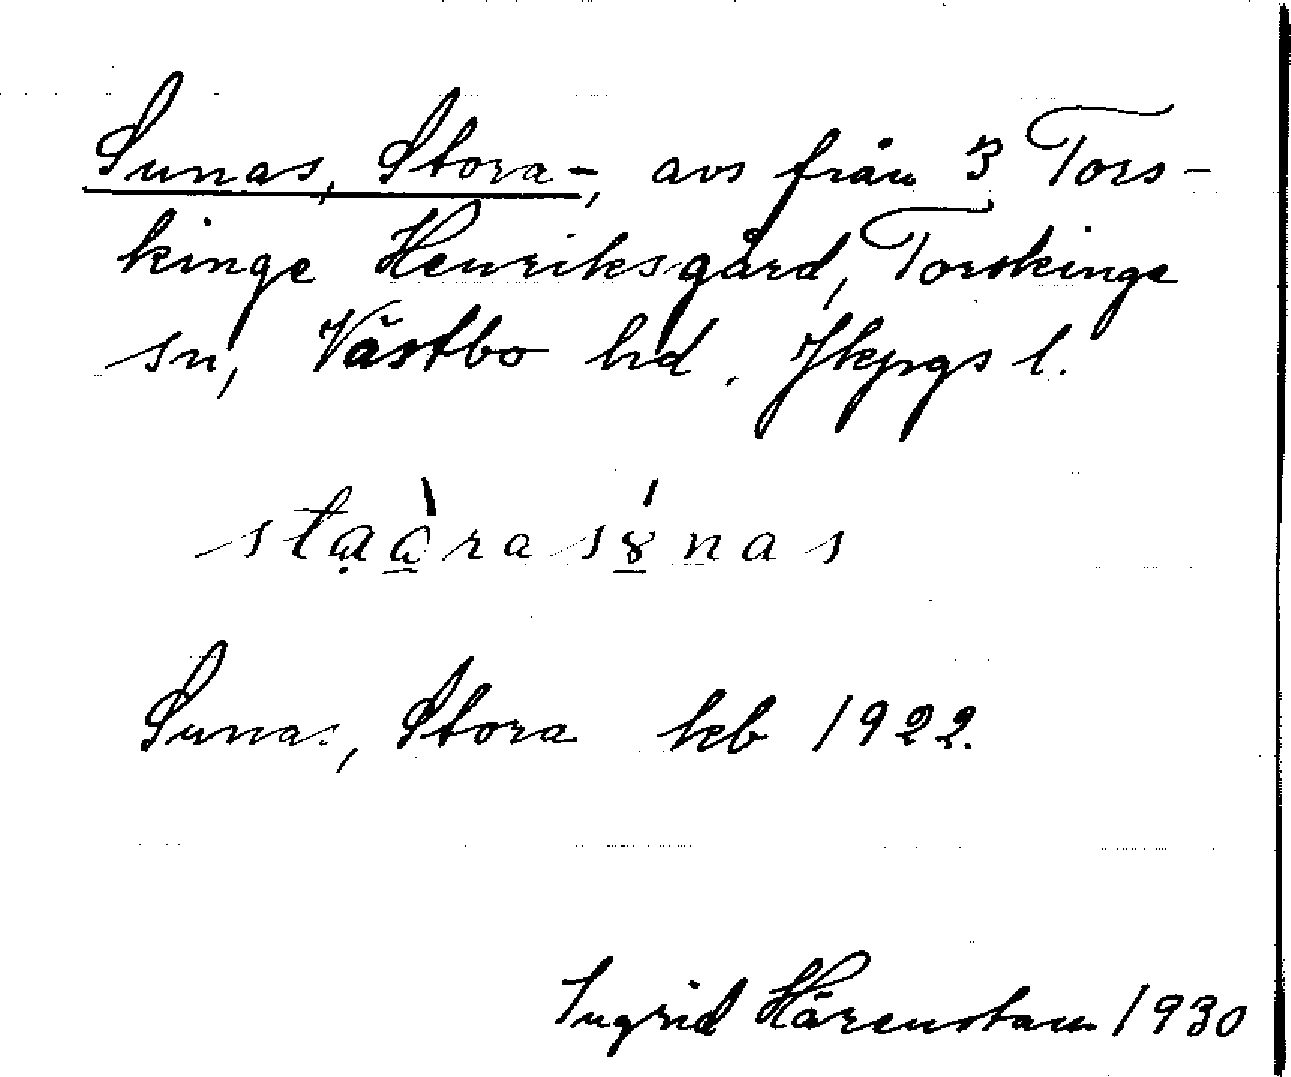 Sunas, Stora-, avs från 3 Tors-
kinge Henriksgård, Torskinge
sn, Västbo hd. Jkpgs l.
stạà̱ras8̱́nas
Sunas, Stora keb 1922.
Ingrid Härenstam 1930